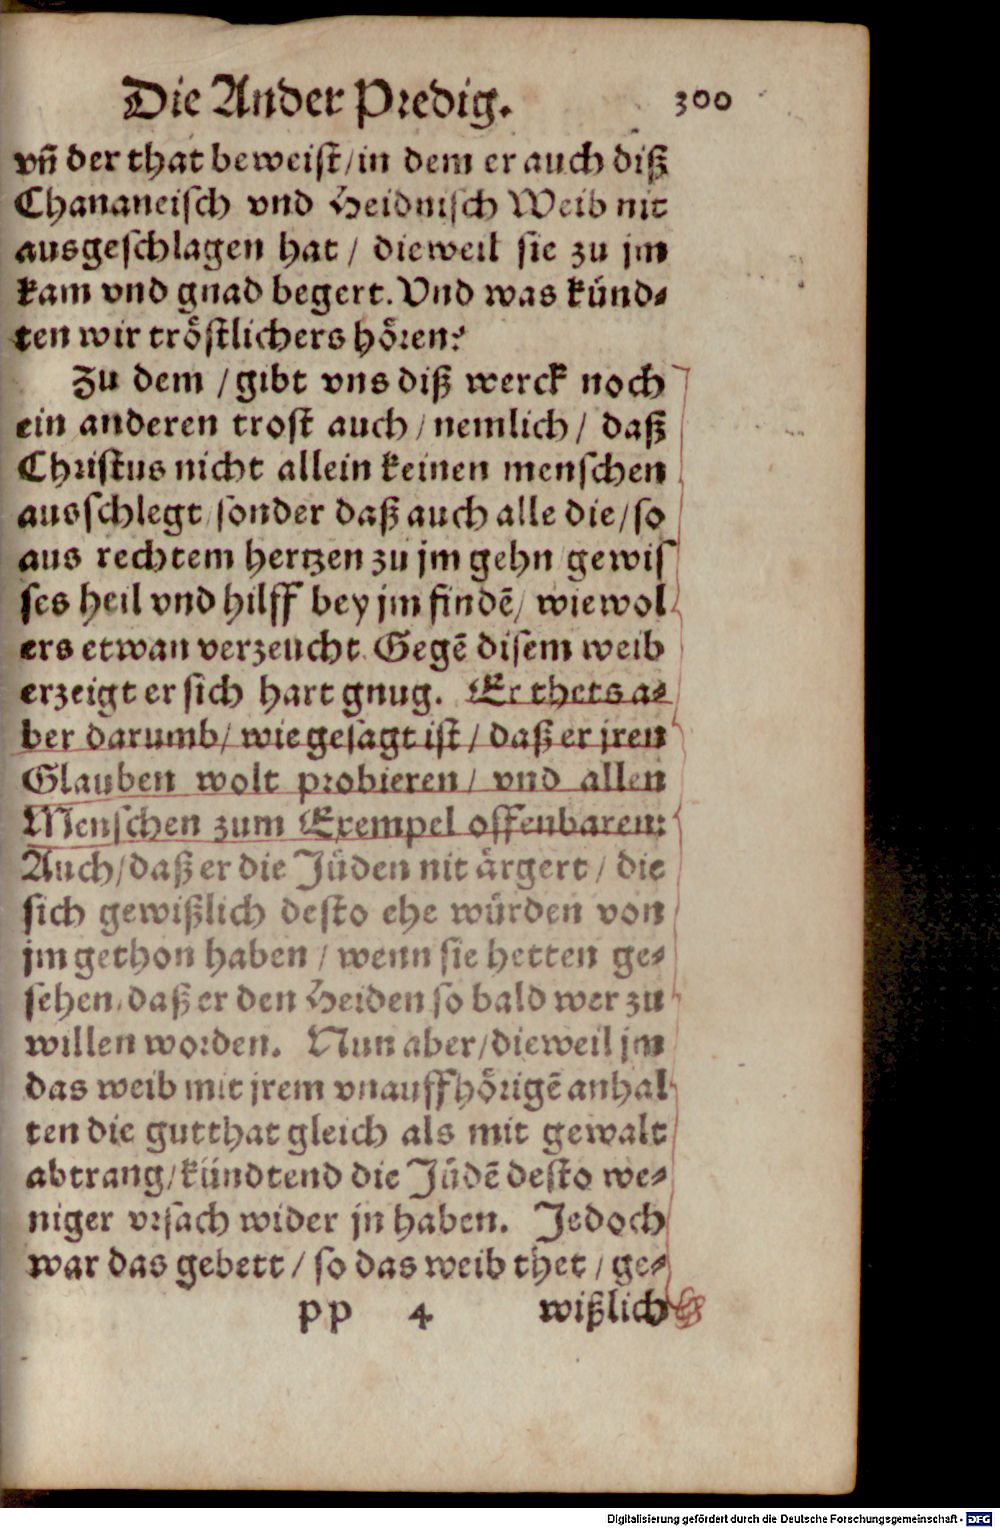 Die Ander Predig. 300
vñ der that beweist/in dem er auch diß
Chananeisch vnd Heidnisch Weib nit
ausgeschlagen hat / dieweil sie zu jm
kam vnd gnad begert. Vnd was künd-
ten wir tröstlichers hören?
Zu dem /gibt vns diß werck noch
ein anderen trost auch/nemlich/ daß
Christus nicht allein keinen menschen
ausschlegt/sonder daß auch alle die/so
aus rechtem hertzen zu jm gehn/gewis
ses heil vnd hilff bey jm findē/ wiewol
ers etwan verzeucht. Gegē disem weib
erzeigt er sich hart gnug. Er thets a-
ber darumb/ wie gesagt ist / daß er jren
Glauben wolt probieren/ vnd allen
Menschen zum Exempel offenbaren:
Auch/daß er die Jüden nit ärgert / die
sich gewißlich desto ehe würden von
jm gethon haben / wenn sie hetten ge-
sehen/daß er den Heiden so bald wer zu
willen worden. Nun aber/dieweil jm
das weib mit jrem vnauffhörigē anhal
ten die gutthat gleich als mit gewalt
abtrang/kündtend die Jüdē desto we-
niger vrsach wider jn haben. Jedoch
war das gebett / so das weib thet / ge-
pp 4 wißlich
Digitalisierung gefördert durch die Deutsche Forschungsgemeinschaft - DFG